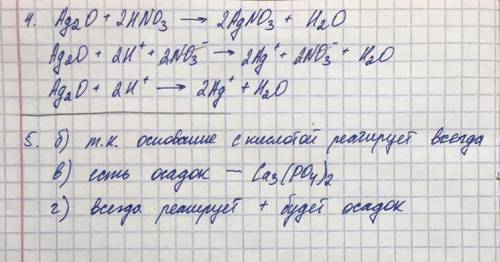 4. Ag2O + 2HNO3 → 2AgNO3 + H2O
Ag2O + 2H⁺ + 2NO3⁻ → 2Ag⁺ + 2NO3⁻ + H2O
Ag2O + 2H⁺ → 2Ag⁺ + H2O
5. б) т.к. основание с кислотой реагирует всегда
в) есть осадок – Ca3(PO4)2
г) всегда реагирует + будет осадок